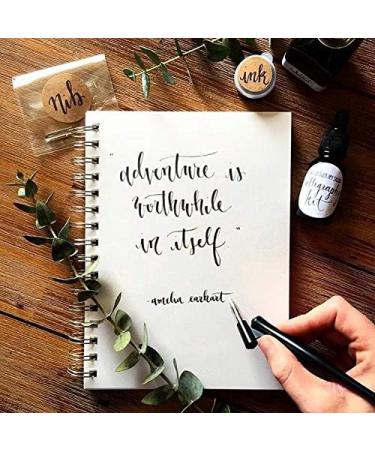 Nib
ink
"adventure is
worthwhile
in itself"
-amelia earhart
calligraphy
kit